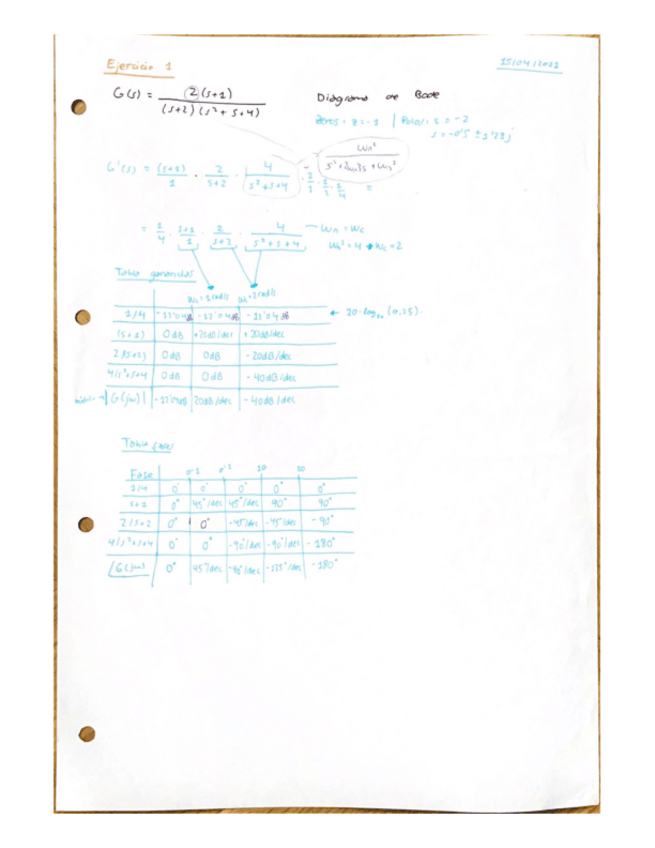 Ejercicio 1
15/04/2021
G(s) = 2(s+1) / (s+2)(s²+s+4)
Diagrama de Bode
Zeros: z=-1 | Polos: s=-2
s=-0'5 ±
Wn² / s²+2
G'(s) = (s+1)/1 · 2/s+2 · 4/s²+s+4 · 1/1 · 1/2 · 1/4 =
= 1/4 · s+1/1 · 2/s+2 · 4/s²+s+4
Wn = Wc
Wn² = 4 → Wc=2
Tabla ganancias
Wc=1 rad/s Wc=2 rad/s
1/4 -12'04 dB -12'04 dB -12'04 dB ← 20·log₁₀ (0,25).
(s+1) 0dB +20dB/dec +20dB/dec
2/(s+2) 0dB 0dB -20dB/dec
4/s²+s+4 0dB 0dB -40dB/dec
|G(jw)| -12'04dB 20dB/dec -40dB/dec
Tabla fases
Fase 0'1 0'2 10 20
1/4 0° 0° 0° 0° 0°
s+1 0° 45°/dec 45°/dec 90° 90°
2/s+2 0° 0° -45°/dec -45°/dec -90°
4/s²+s+4 0° 0° -90°/dec -90°/dec -180°
/G(jw) 0° 45°/dec -90°/dec -135°/dec -180°